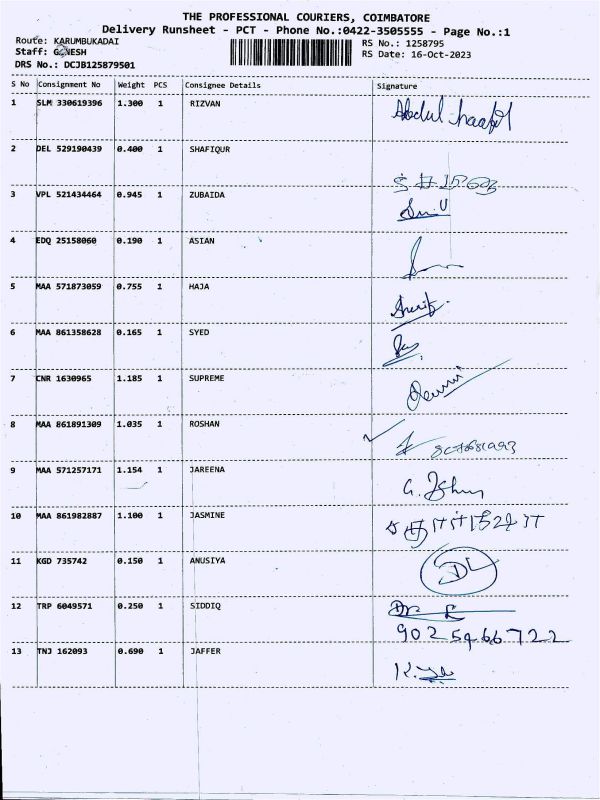 THE PROFESSIONAL COURIERS, COIMBATORE
Delivery Runsheet - PCT - Phone No.:0422-3505555 - Page No.:1
Route: KARUMBUKADAI
Staff: GANESH
DRS No.: DCJB125879501
RS No.: 1258795
RS Date: 16-Oct-2023
S No Consignment No Weight PCS Consignee Details Signature
1 SLM 330619396 1.300 1 RIZVAN Abdul
2 DEL 529190439 0.400 1 SHAFIQUR
3 VPL 521434464 0.945 1 ZUBAIDA
4 EDQ 25158060 0.190 1 ASIAN
5 MAA 571873059 0.755 1 HAJA
6 MAA 861358628 0.165 1 SYED
7 CNR 1630965 1.185 1 SUPREME
8 MAA 861891309 1.035 1 ROSHAN
9 MAA 571257171 1.154 1 JAREENA
10 MAA 861982887 1.100 1 JASMINE
11 KGD 735742 0.150 1 ANUSIYA
12 TRP 6049571 0.250 1 SIDDIQ
9025466722
13 TNJ 162093 0.690 1 JAFFER